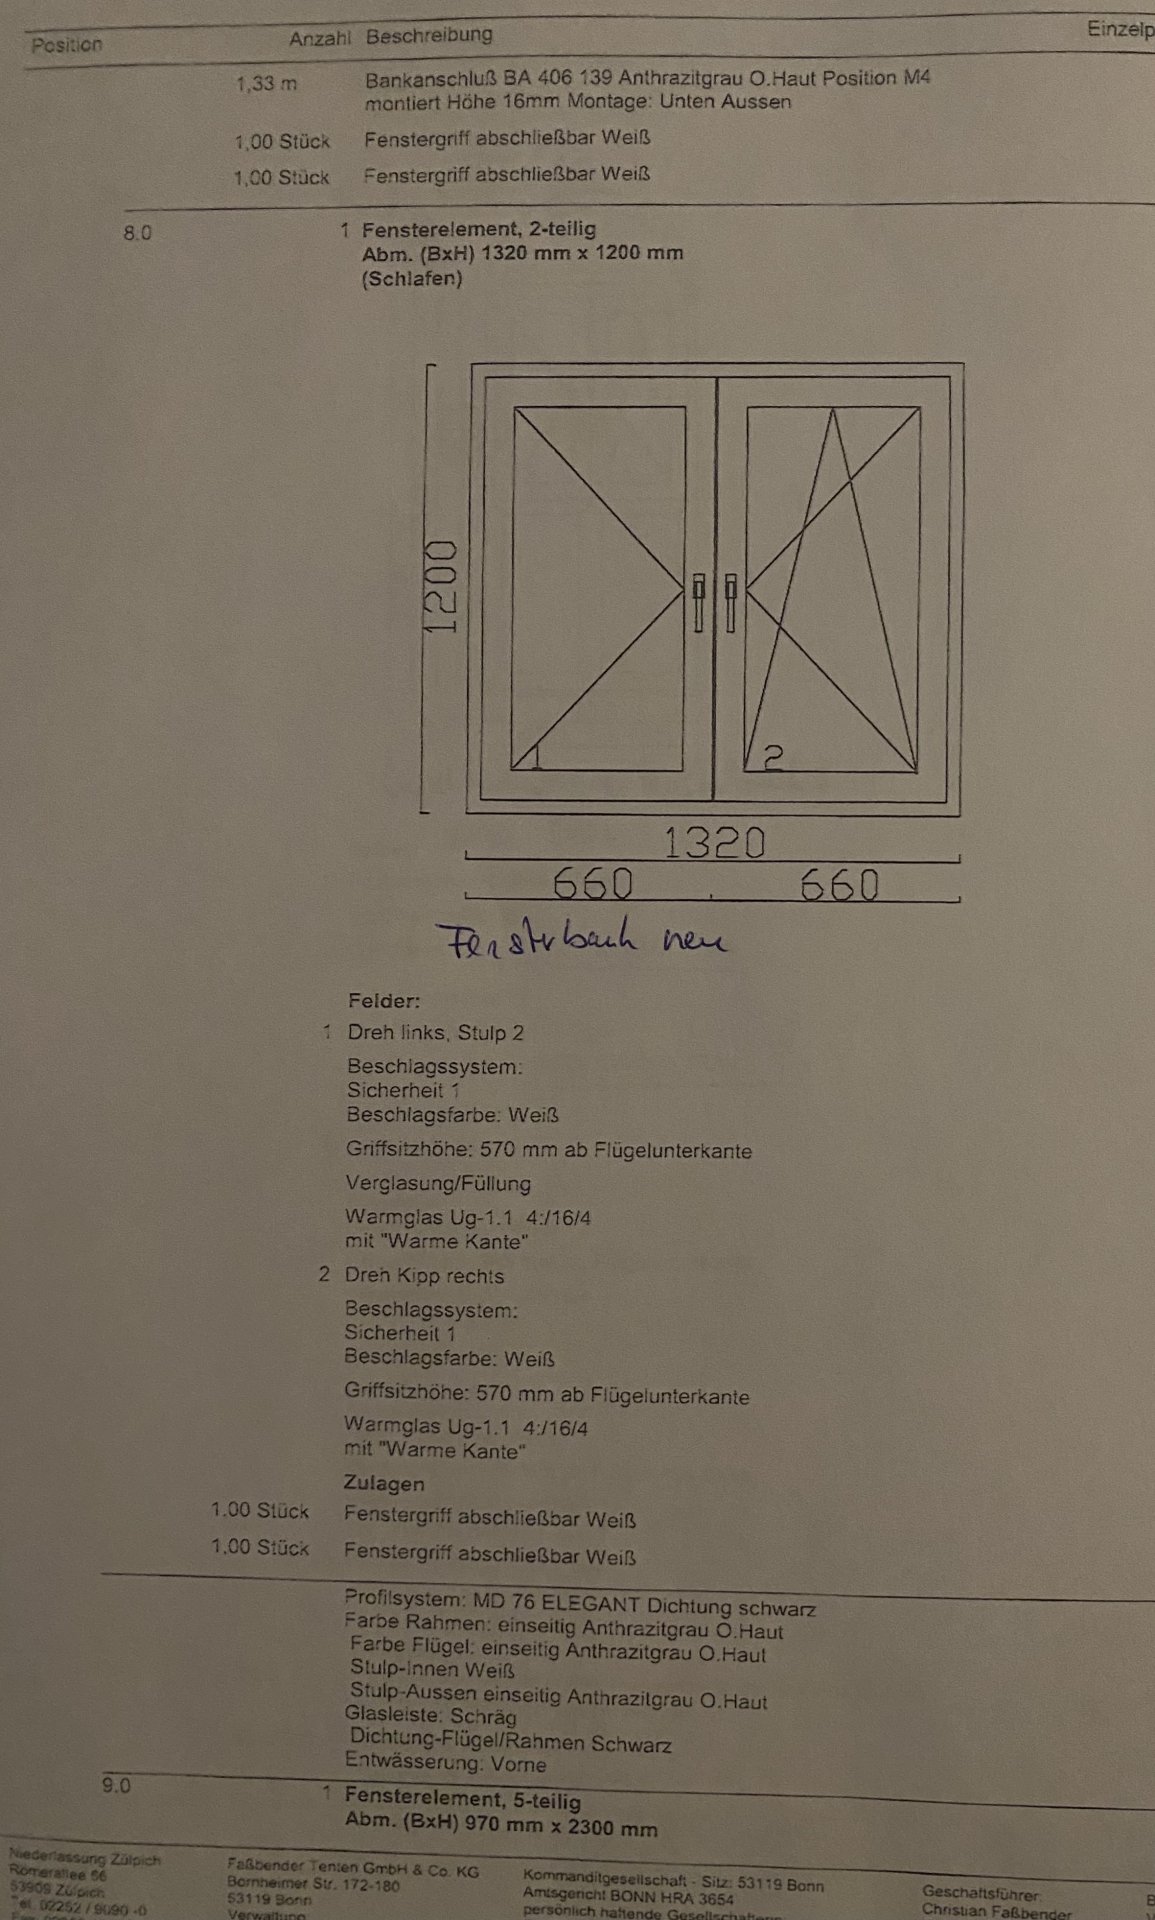 Position Anzahl Beschreibung Einzelp
1,33 m Bankanschluß BA 406 139 Anthrazitgrau O.Haut Position M4
montiert Höhe 16mm Montage: Unten Aussen
1,00 Stück Fenstergriff abschließbar Weiß
1,00 Stück Fenstergriff abschließbar Weiß
8.0 1 Fensterelement, 2-teilig
Abm. (BxH) 1320 mm x 1200 mm
(Schlafen)
1200
1 2
1320
660 660
Fensterbank neu
Felder:
1 Dreh links, Stulp 2
Beschlagssystem:
Sicherheit 1
Beschlagsfarbe: Weiß
Griffsitzhöhe: 570 mm ab Flügelunterkante
Verglasung/Füllung
Warmglas Ug-1.1 4:/16/4
mit "Warme Kante"
2 Dreh Kipp rechts
Beschlagssystem:
Sicherheit 1
Beschlagsfarbe: Weiß
Griffsitzhöhe: 570 mm ab Flügelunterkante
Warmglas Ug-1.1 4:/16/4
mit "Warme Kante"
Zulagen
1,00 Stück Fenstergriff abschließbar Weiß
1,00 Stück Fenstergriff abschließbar Weiß
Profilsystem: MD 76 ELEGANT Dichtung schwarz
Farbe Rahmen: einseitig Anthrazitgrau O.Haut
Farbe Flügel: einseitig Anthrazitgrau O.Haut
Stulp-Innen Weiß
Stulp-Aussen einseitig Anthrazitgrau O.Haut
Glasleiste: Schräg
Dichtung-Flügel/Rahmen Schwarz
Entwässerung: Vorne
9.0 1 Fensterelement, 5-teilig
Abm. (BxH) 970 mm x 2300 mm
Niederlassung Zülpich
Römerallee 56
53909 Zülpich
Tel. 02252 / 9090 -0
Faßbender Tenten GmbH & Co. KG
Bornheimer Str. 172-180
53119 Bonn
Verwaltung
Kommanditgesellschaft - Sitz: 53119 Bonn
Amtsgericht BONN HRA 3654
persönlich haftende Gesellschafterin
Geschäftsführer:
Christian Faßbender